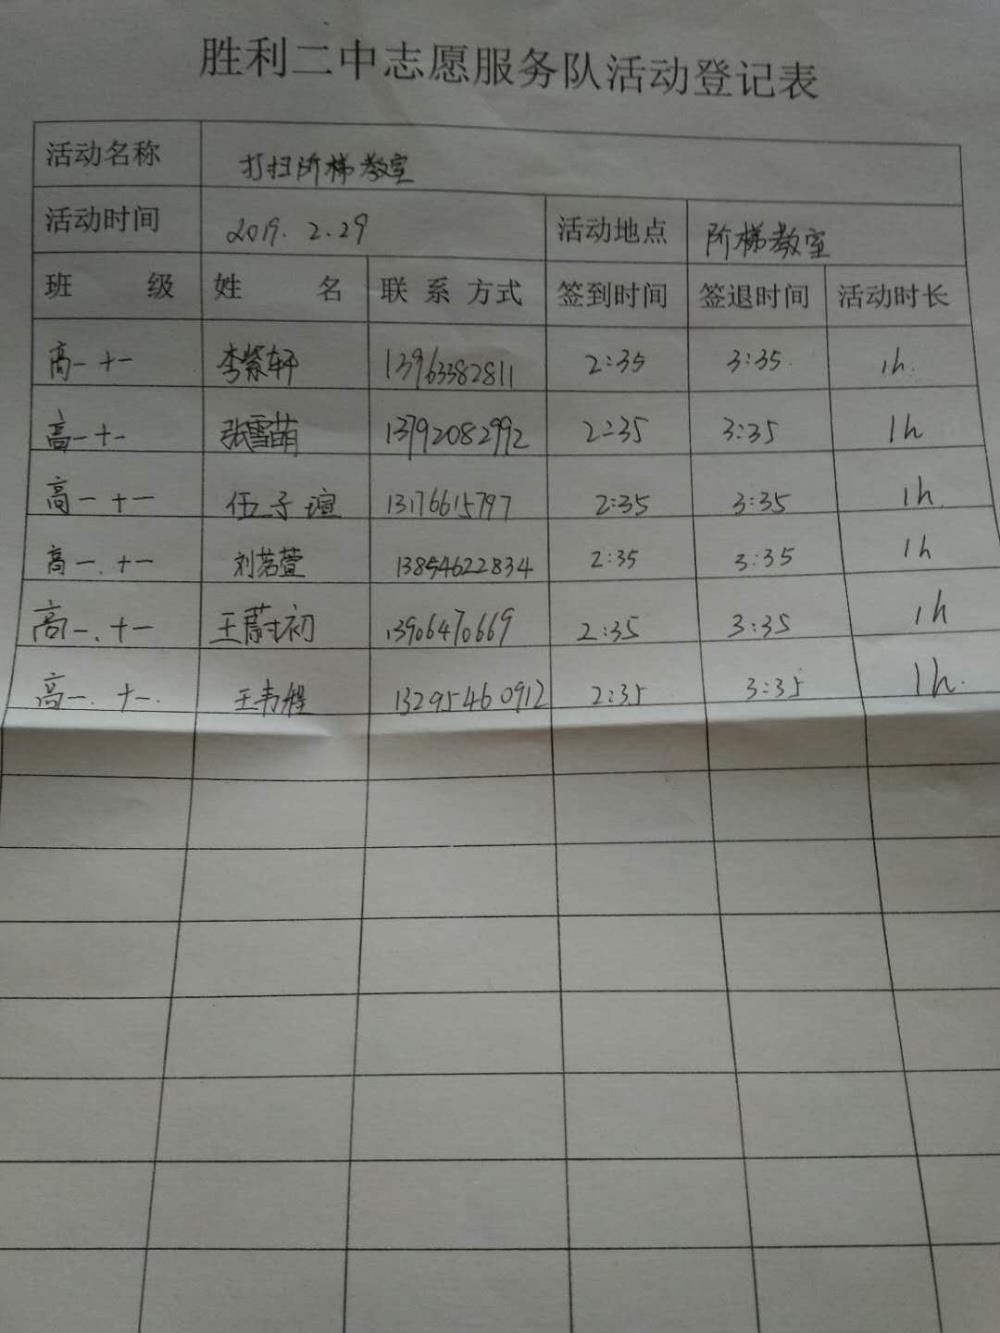 胜利二中志愿服务队活动登记表
活动名称 打扫阶梯教室
活动时间 2019.2.29 活动地点 阶梯教室
班级 姓名 联系方式 签到时间 签退时间 活动时长
高一十一 李紫轩 13963382811 2:35 3:35 1h.
高一十一 张雪萌 13792082992 2:35 3:35 1h
高一十一 伍子瑄 13176615797 2:35 3:35 1h
高一.十一 刘若萱 13854622834 2:35 3:35 1h
高一.十一 王蔚初 13906470669 2:35 3:35 1h
高一.十一. 王韦程 13295460912 2:35 3:35 1h.